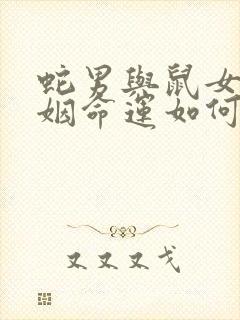 蛇男與鼠女
姻命運如何
又又又戈